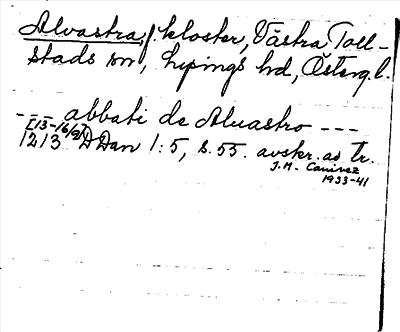 Alvastra, f. kloster, Västra Toll-
stads sn, Lysings hd, Österg.l.
--- abbati de Aluastro ---
[13-16/9]
1213 DDan 1:5, s. 55. avskr. av tr.
J.M. Canivez
1933-41